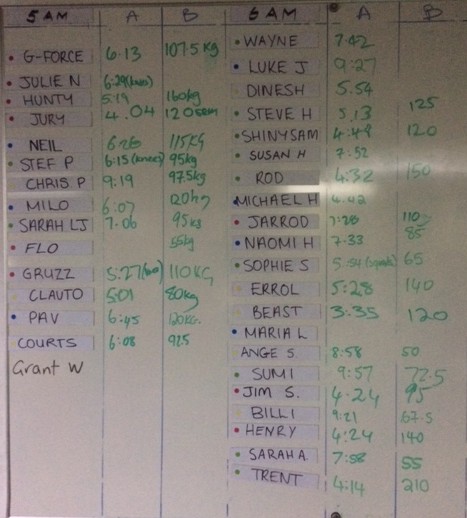 5 AM A B
G-FORCE 6.13 107.5 kg
JULIE N 6:29
HUNTY 5:19 160kg
JURY 4.04 120
NEIL 115KG
STEF P 6:15 (knees) 95kg
CHRIS P 9:19 97.5kg
MILO 6:07 120kg
SARAH LJ 7.06 95kg
FLO 55kg
GRUZZ 5:27 110KG
CLAUTO 501 80kg
PAV 6:45 120KG.
COURTS 6:08 925
Grant W
6 AM A B
WAYNE 7.42
LUKE J 9:27
DINESH 5.54
STEVE H 5.13 125
SHINYSAM 4:48 120
SUSAN H 7:52
ROD 4:32 150
MICHAEL H 4:42
JARROD 7:28 110
NAOMI H 7.33 85
SOPHIE S 65
ERROL 5:28 140
BEAST 3:35 120
MARIA L
ANGE S. 8:58 50
SUMI 9:57 72.5
JIM S. 4:24 95
BILLI 9:21 67.5
HENRY 4:24 140
SARAH A. 7:58 55
TRENT 4:14 210